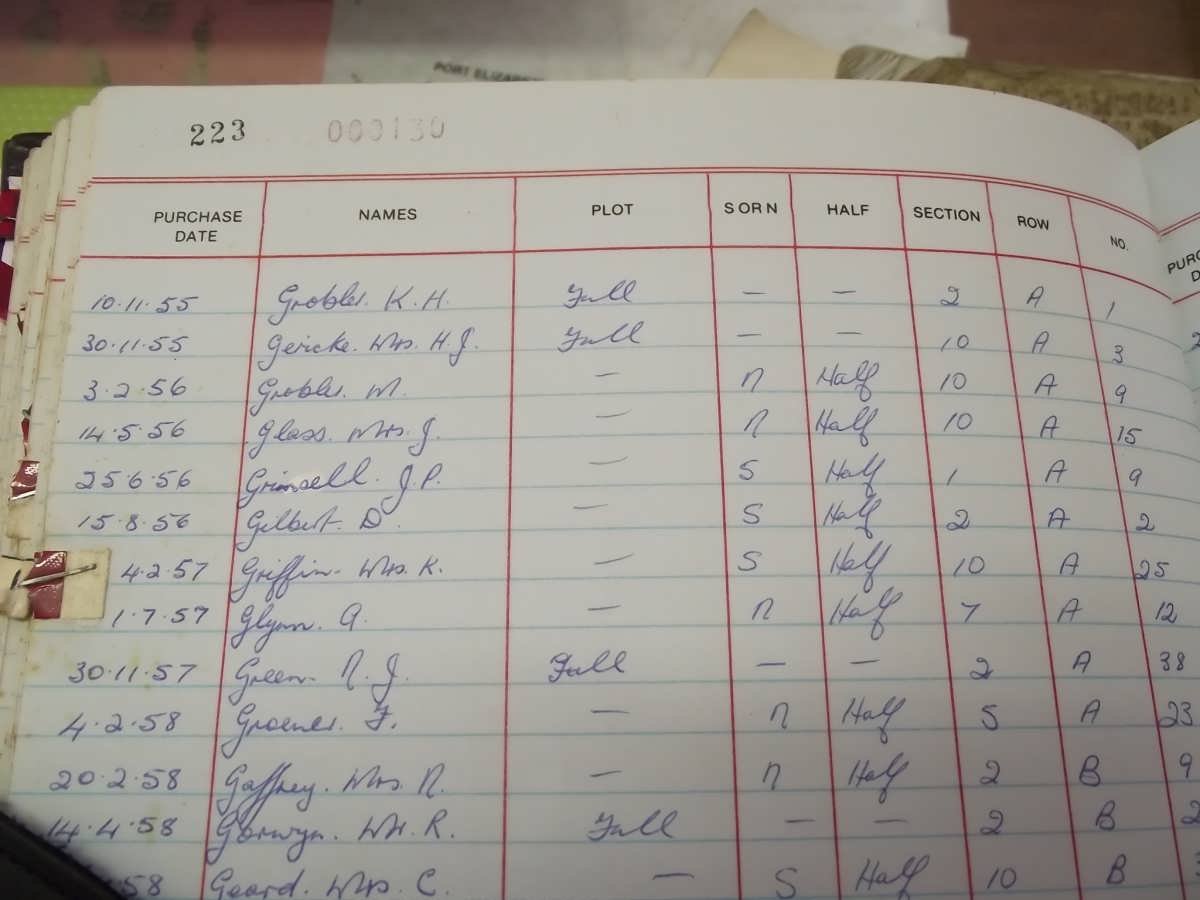 PORT ELIZABE
223 000130
PURCHASE DATE NAMES PLOT S OR N HALF SECTION ROW NO.
PURC
D
10.11.55 Grobler. K. H. Full — — 2 A 1
30.11.55 Gericke. Mrs. H. J. Full — — 10 A 3
3.2.56 Grobler. M. — N Half 10 A 9
14.5.56 Glass. Mrs. J. — N Half 10 A 15
25.6.56 Grimsell. J. P. — S Half 1 A 9
15.8.56 Gilbert. D. — S Half 2 A 2
4.2.57 Griffin. Mrs. K. — S Half 10 A 25
1.7.57 Glynn. A. — N Half 7 A 12
30.11.57 Green. N. J. Full — — 2 A 38
4.2.58 Groener. F. — N Half 5 A 23
20.2.58 Gaffney. Mrs. N. — N Half 2 B 9
14.4.58 Mr. R. Full — — 2 B 2
58 Geard. Mrs. C. — S Half 10 B